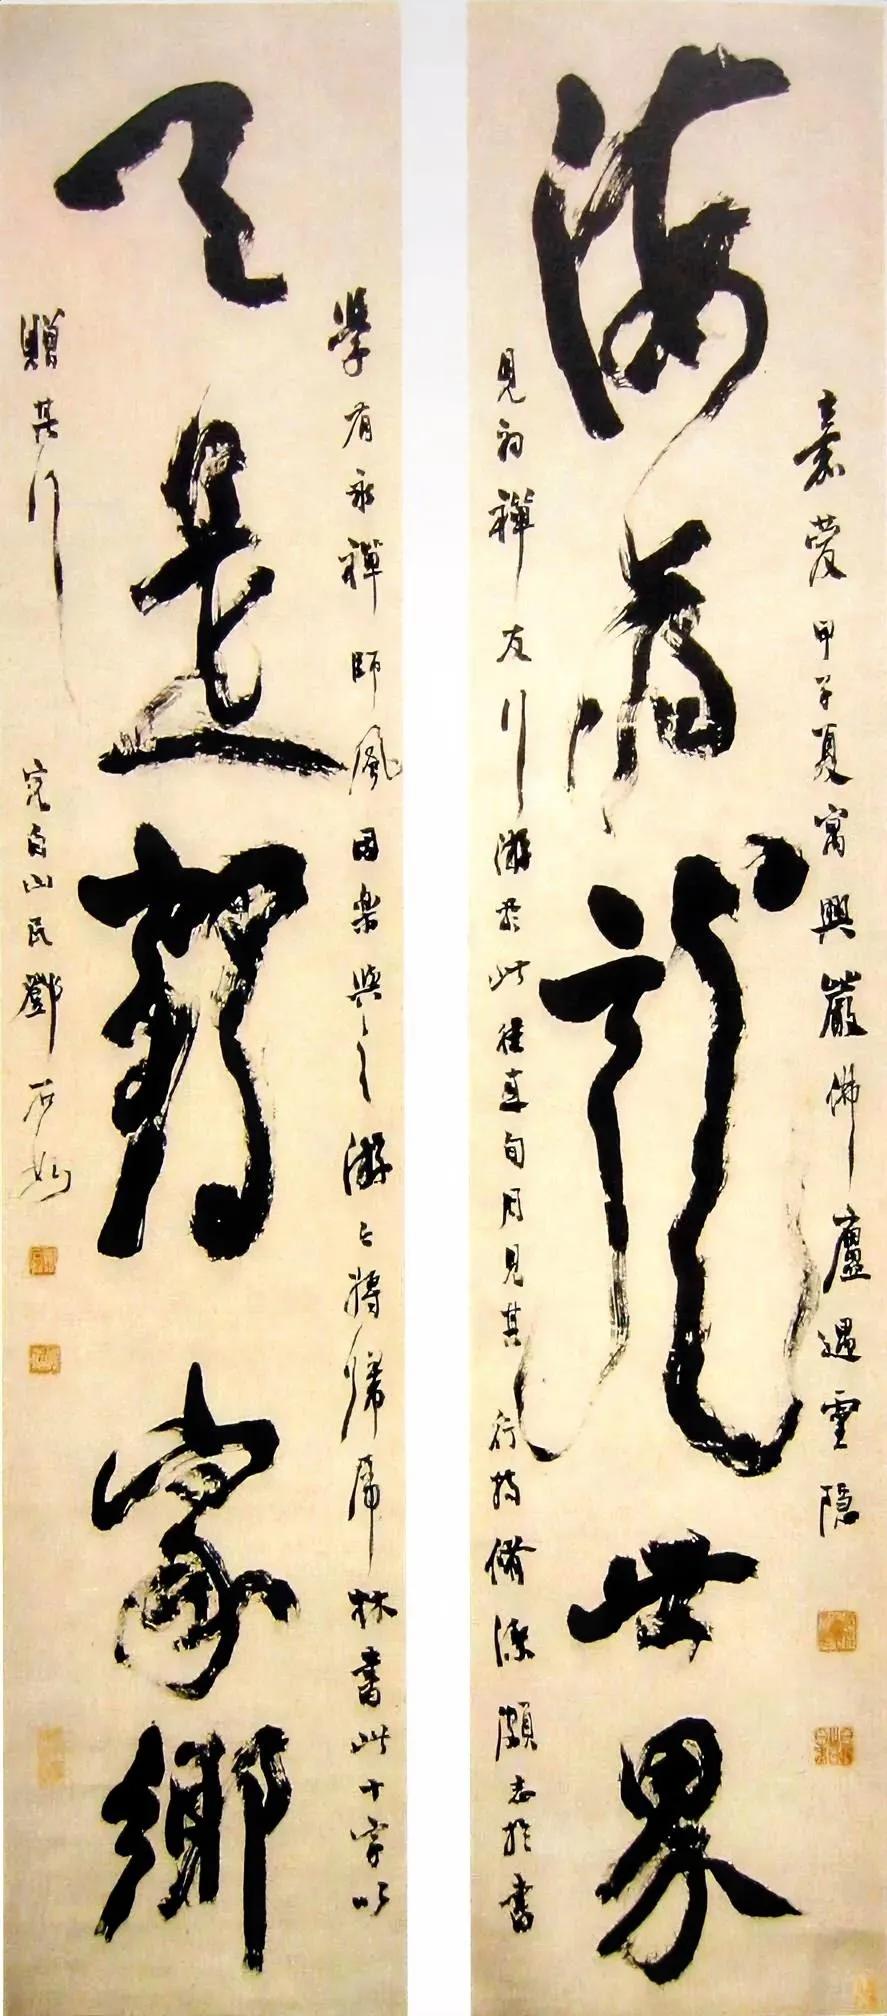 嘉慶甲子夏寓興嚴佛廬遇雲隱
海為龍世界
見初禪友行游於此旬月見其行持脩潔頗志於書
學有永禪師風因樂與之游游將歸虎林書此十字以
天是鶴家鄉
贈其行
完白山民鄧石如